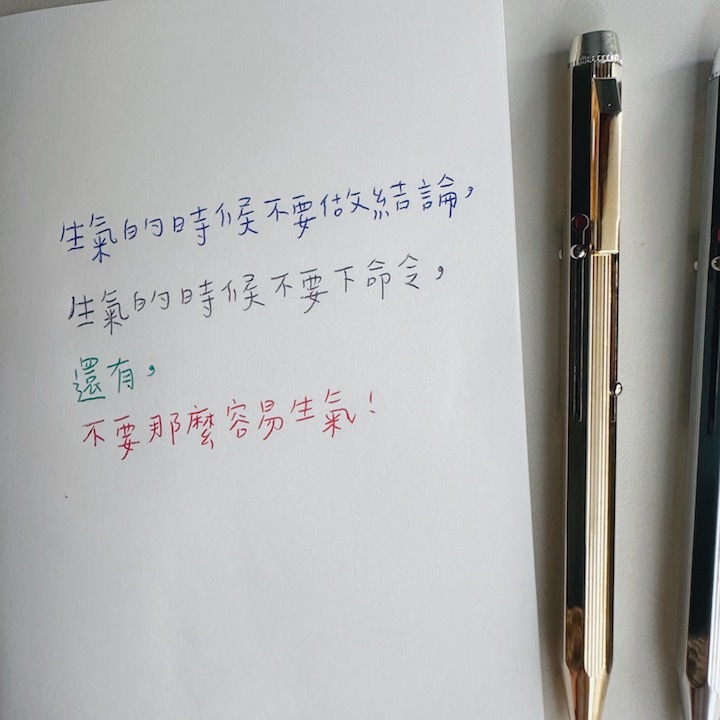 生氣的時候不要做結論，
生氣的時候不要下命令，
還有，
不要那麼容易生氣！